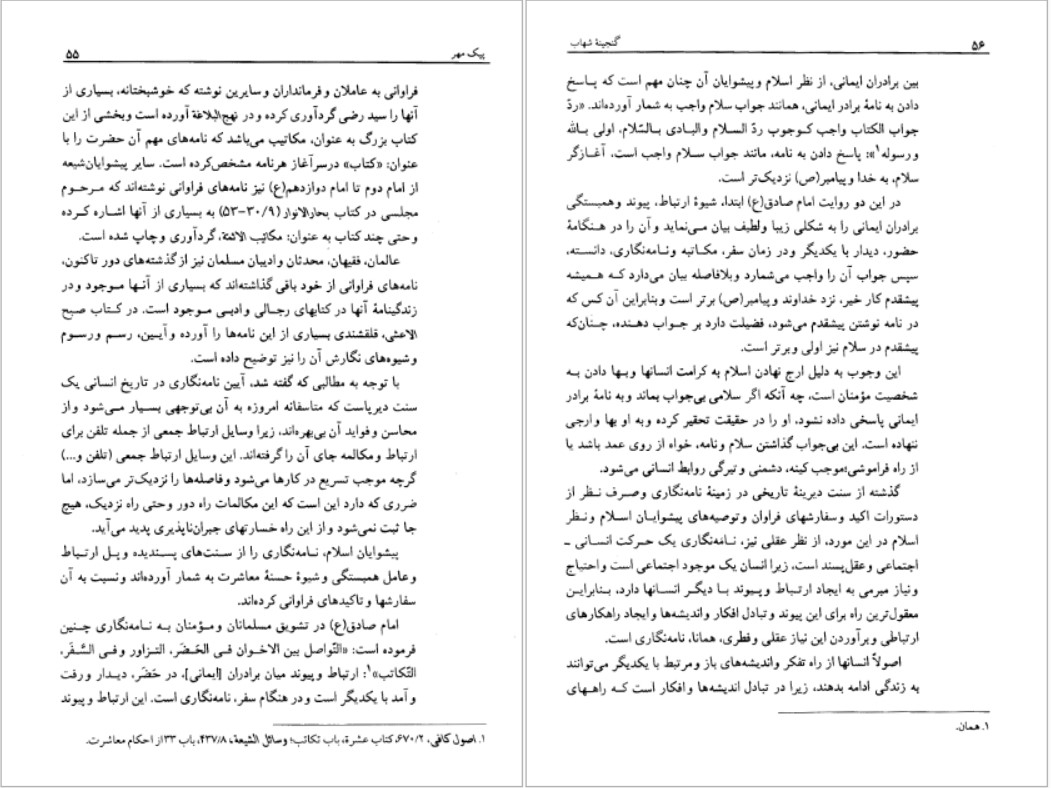 پیک مهر
۵۵
فراوانی به عاملان و فرمانداران و سایرین نوشته که خوشبختانه، بسیاری از
آنها را سید رضی گردآوری کرده و در نهج‌البلاغة آورده است و بخشی از این
کتاب بزرگ به عنوان، مکاتیب می‌باشد که نامه‌های مهم آن حضرت را با
عنوان: «کتاب» در سرآغاز هر نامه مشخص کرده است. سایر پیشوایان شیعه
از امام دوم تا امام دوازدهم(ع) نیز نامه‌های فراوانی نوشته‌اند که مرحوم
مجلسی در کتاب بحارالانوار (۳۰/۹-۵۳) به بسیاری از آنها اشاره کرده
و حتی چند کتاب به عنوان: مکاتیب الائمة، گردآوری و چاپ شده است.
عالمان، فقیهان، محدثان و ادیبان مسلمان نیز از گذشته‌های دور تاکنون،
نامه‌های فراوانی از خود باقی گذاشته‌اند که بسیاری از آنها موجود و در
زندگینامهٔ آنها در کتابهای رجالی و ادبی موجود است. در کتاب صبح
الاعشی، قلقشندی بسیاری از این نامه‌ها را آورده و آیین، رسم و رسوم
و شیوه‌های نگارش آن را نیز توضیح داده است.
با توجه به مطالبی که گفته شد، آیین نامه‌نگاری در تاریخ انسانی یک
سنت دیرپاست که متاسفانه امروزه به آن بی‌توجهی بسیار می‌شود و از
محاسن و فواید آن بی‌بهره‌اند، زیرا وسایل ارتباط جمعی از جمله تلفن برای
ارتباط و مکالمه جای آن را گرفته‌اند. این وسایل ارتباط جمعی (تلفن و...)
گرچه موجب تسریع در کارها می‌شود و فاصله‌ها را نزدیک‌تر می‌سازد، اما
ضرری که دارد این است که این مکالمات راه دور و حتی راه نزدیک، هیچ
جا ثبت نمی‌شود و از این راه خسارتهای جبران‌ناپذیری پدید می‌آید.
پیشوایان اسلام، نامه‌نگاری را از سنت‌های پسندیده و پل ارتباط
و عامل همبستگی و شیوهٔ حسنهٔ معاشرت به شمار آورده‌اند و نسبت به آن
سفارشها و تاکیدهای فراوانی کرده‌اند.
امام صادق(ع) در تشویق مسلمانان و مؤمنان به نامه‌نگاری چنین
فرموده است: «التّواصل بین الاخوان فی الحَضَر، التزاور وفی السَّفَر،
التّکاتب»۱: ارتباط و پیوند میان برادران [ایمانی]، در حَضَر، دیدار و رفت
و آمد با یکدیگر است و در هنگام سفر، نامه‌نگاری است. این ارتباط و پیوند
۱. اصول کافی، ۶۷۰/۲، کتاب عشرة، باب تکاتب؛ وسائل الشیعة، ۴۳۷/۸، باب ۳۳ از احکام معاشرت.
گنجینهٔ شهاب
۵۶
بین برادران ایمانی، از نظر اسلام و پیشوایان آن چنان مهم است که پاسخ
دادن به نامهٔ برادر ایمانی، همانند جواب سلام واجب به شمار آورده‌اند. «ردّ
جواب الکتاب واجب کوجوب ردّ السلام والبادی بالسّلام، اولی بالله
و رسوله۱»: پاسخ دادن به نامه، مانند جواب سلام واجب است، آغازگر
سلام، به خدا و پیامبر(ص) نزدیک‌تر است.
در این دو روایت امام صادق(ع) ابتدا، شیوهٔ ارتباط، پیوند و همبستگی
برادران ایمانی را به شکلی زیبا و لطیف بیان می‌نماید و آن را در هنگامهٔ
حضور، دیدار با یکدیگر و در زمان سفر، مکاتبه و نامه‌نگاری، دانسته،
سپس جواب آن را واجب می‌شمارد و بلافاصله بیان می‌دارد که همیشه
پیشقدم کار خیر، نزد خداوند و پیامبر(ص) برتر است و بنابراین آن کس که
در نامه نوشتن پیشقدم می‌شود، فضیلت دارد بر جواب دهنده، چنان‌که
پیشقدم در سلام نیز اولی و برتر است.
این وجوب به دلیل ارج نهادن اسلام به کرامت انسانها و بها دادن به
شخصیت مؤمنان است، چه آنکه اگر سلامی بی‌جواب بماند و به نامهٔ برادر
ایمانی پاسخی داده نشود، او را در حقیقت تحقیر کرده و به او بها و ارجی
ننهاده است. این بی‌جواب گذاشتن سلام و نامه، خواه از روی عمد باشد یا
از راه فراموشی؛ موجب کینه، دشمنی و تیرگی روابط انسانی می‌شود.
گذشته از سنت دیرینهٔ تاریخی در زمینهٔ نامه‌نگاری و صرف نظر از
دستورات اکید و سفارشهای فراوان و توصیه‌های پیشوایان اسلام و نظر
اسلام در این مورد، از نظر عقلی نیز، نامه‌نگاری یک حرکت انسانی ـ
اجتماعی و عقل‌پسند است، زیرا انسان یک موجود اجتماعی است و احتیاج
و نیاز مبرمی به ایجاد ارتباط و پیوند با دیگر انسانها دارد، بنابراین
معقول‌ترین راه برای این پیوند و تبادل افکار و اندیشه‌ها و ایجاد راهکارهای
ارتباطی و برآوردن این نیاز عقلی و فطری، همانا، نامه‌نگاری است.
اصولاً انسانها از راه تفکر و اندیشه‌های باز و مرتبط با یکدیگر می‌توانند
به زندگی ادامه بدهند، زیرا در تبادل اندیشه‌ها و افکار است که راههای
۱. همان.